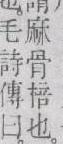 謂麻骨棓也。
也。毛詩傳曰。